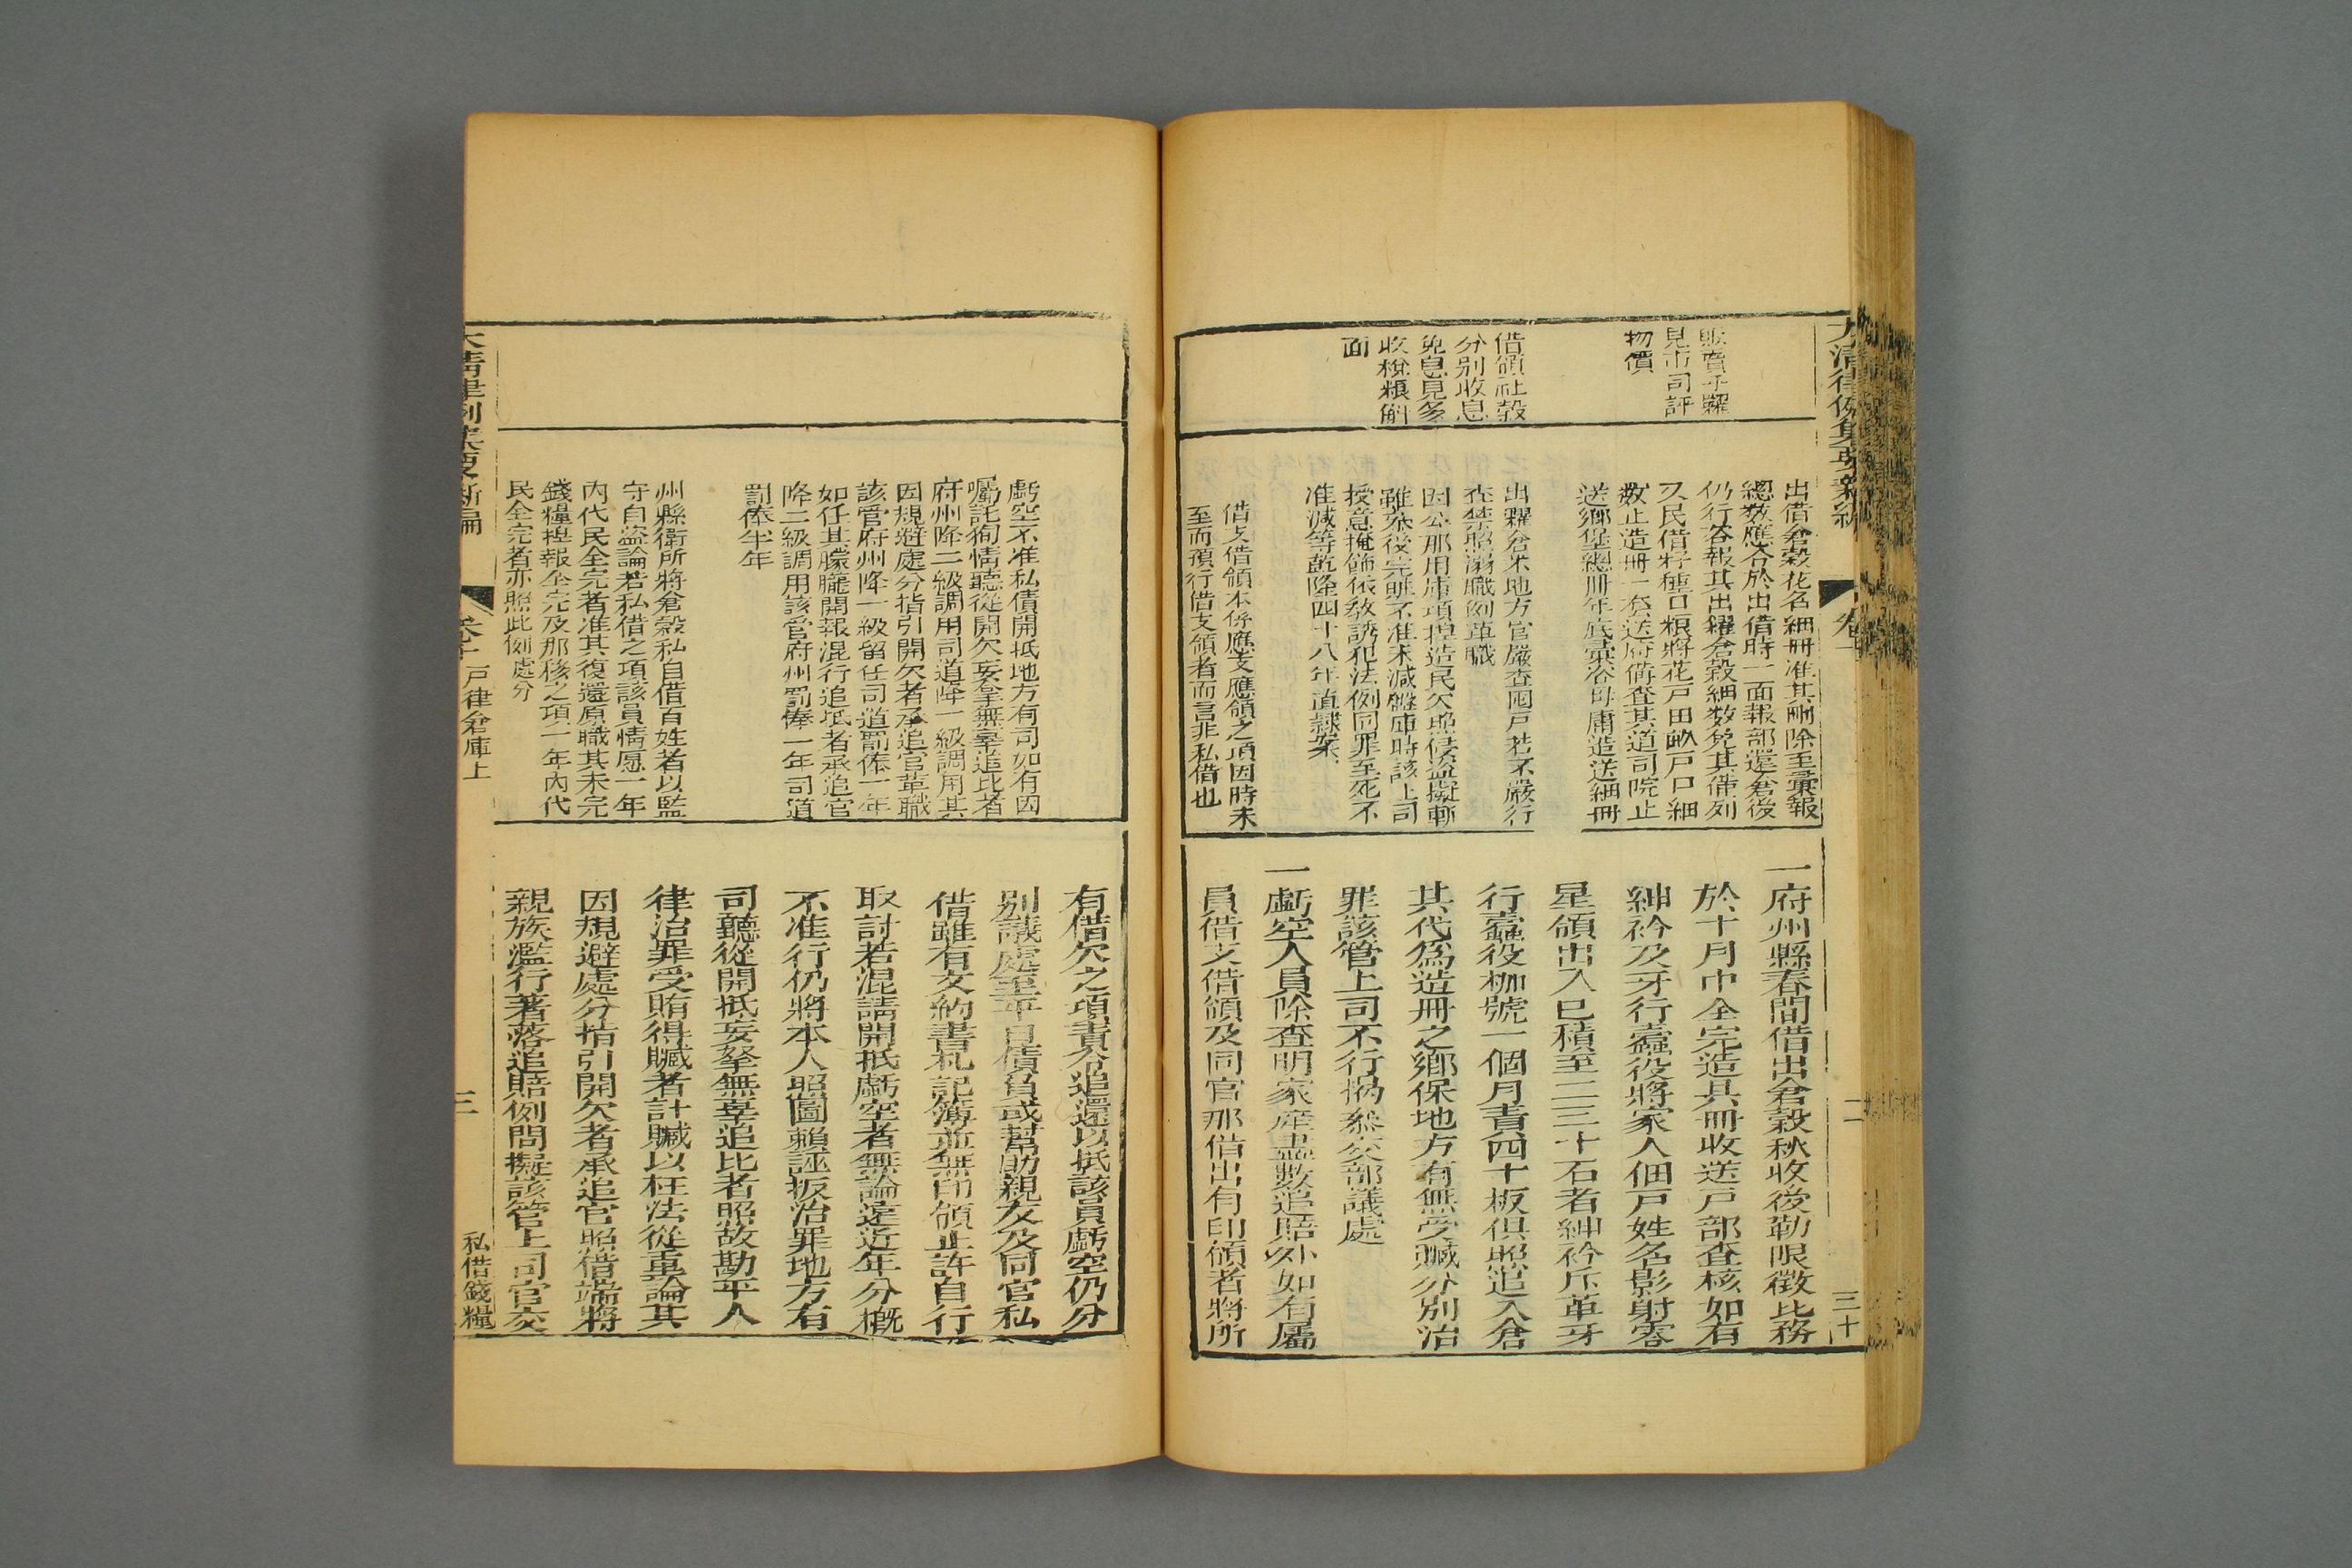 大清律例集要新編
卷十
二
三十
販賣平糶
見市司評
物價
借領社穀
分別收息
免息見多
收稅粮斛
面
出借倉穀花名細冊准其刪除至彙報
總数應令於出借時一面報部還倉後
仍行咨報其出糶倉穀細数免其備列
又民借籽種口粮將花戸田畝戸口細
数止造冊一套送府備查其道司院止
送鄉堡總冊年底彙咨毋庸造送細冊
出糶倉米地方官嚴查囤戸若不嚴行
查禁照溺職例革職
因公那用庫項揑造民欠照侵盜擬斬
雖依後完贓不准末減盤庫時該上司
授意掩飾依教誘犯法例同罪至死不
准減等乾隆四十八年直隸案
借支借領本係應支應領之項因時未
至而預行借支領者而言非私借也
一府州縣春間借出倉穀秋收後勒限徵比務
於十月中全完造具冊收送戸部查核如有
紳衿及牙行蠧役將家人佃戸姓名影射零
星領出入已積至二三十石者紳衿斥革牙
行蠧役枷號一個月責四十板俱照追入倉
其代爲造冊之鄉保地方有無受贓分別治
罪該管上司不行揭叅交部議處
一虧空人員除查明家産盡數追賠外如有屬
員借支借領及同官那借出有印領者將所
虧空不准私債開抵地方有司如有因
囑託徇情聽從開欠妄拿無辜追比者
府州降二級調用司道降一級調用其
因規避處分指引開欠者承追官革職
該管府州降一級留任司道罰俸一年
如任其朦朧開報混行追抵者承追官
降二級調用該管府州罰俸一年司道
罰俸半年
州縣衛所將倉穀私自借百姓者以監
守自盜論若私借之項該員情愿一年
內代民全完者准其復還原職其未完
錢糧揑報全完及那移之項一年內代
民全完者亦照此例處分
有借欠之項責令追還以抵該員虧空仍分
別議處至平日債負或幫助親友及同官私
借雖有文約書札記簿並無印領止許自行
取討若混請開抵虧空者無論遠近年分概
不准行仍將本人照圖賴誣扳治罪地方有
司聽從開抵妄拏無辜追比者照故勘平人
律治罪受賄得贓者計贓以枉法從重論其
因規避處分指引開欠者承追官照借端將
親族濫行著落追賠例問擬該管上司官交
大清律例集要新編
卷十 戸律倉庫上
三
私借錢糧